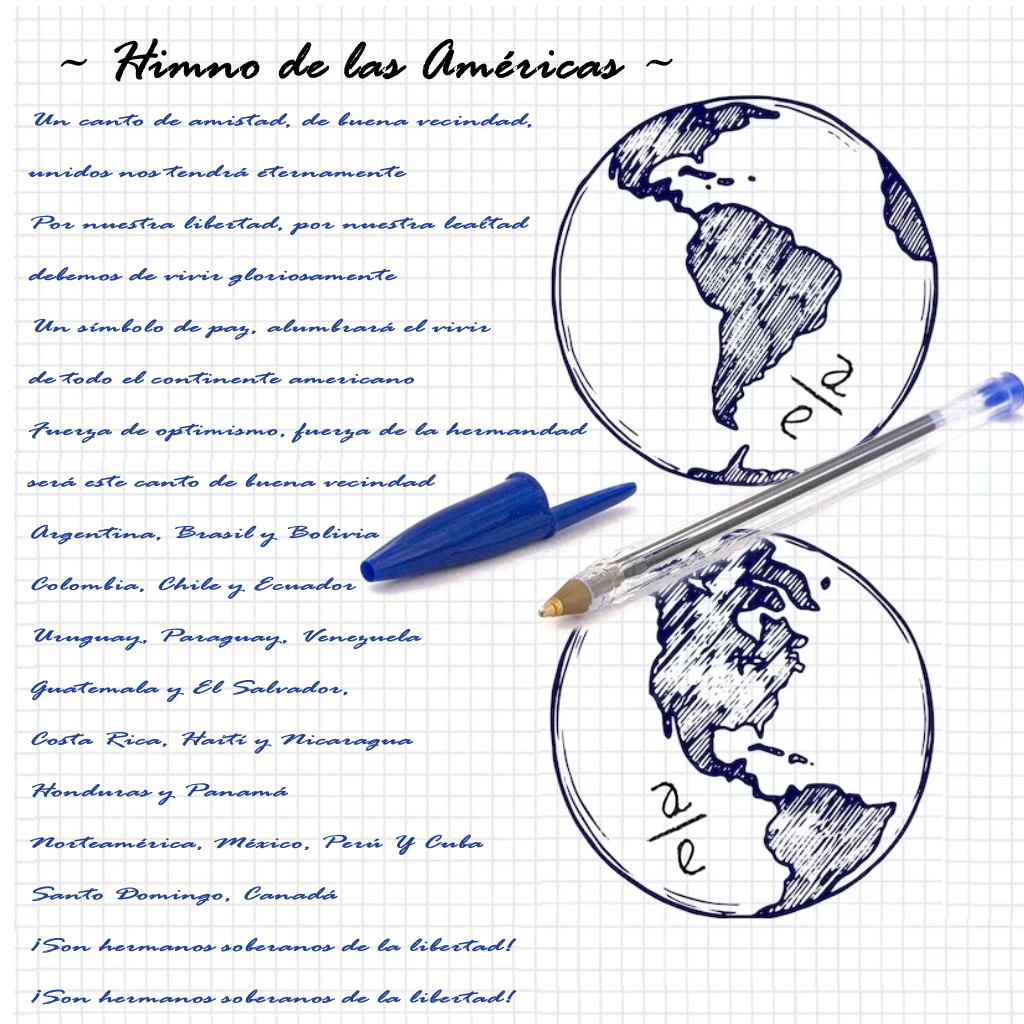 ~ Himno de las Américas ~
Un canto de amistad, de buena vecindad,
unidos nos tendrá eternamente
Por nuestra libertad, por nuestra lealtad
debemos de vivir gloriosamente
Un símbolo de paz, alumbrará el vivir
de todo el continente americano
Fuerza de optimismo, fuerza de la hermandad
será este canto de buena vecindad
Argentina, Brasil y Bolivia
Colombia, Chile y Ecuador
Uruguay, Paraguay, Venezuela
Guatemala y El Salvador,
Costa Rica, Haití y Nicaragua
Honduras y Panamá
Norteamérica, México, Perú Y Cuba
Santo Domingo, Canadá
¡Son hermanos soberanos de la libertad!
¡Son hermanos soberanos de la libertad!
a/e
a/e